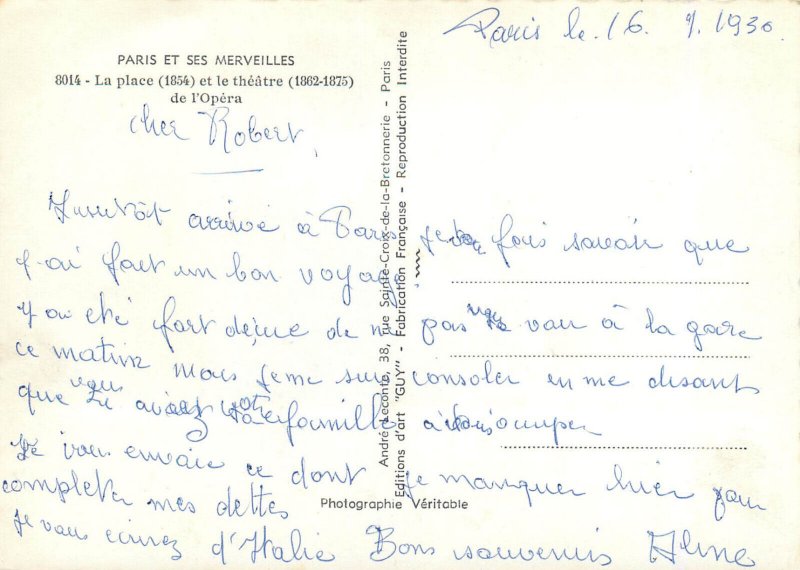 Paris le 16. 9. 1930.
PARIS ET SES MERVEILLES
8014 - La place (1854) et le théâtre (1862-1875)
de l'Opéra
cher Robert,
arrivé à Paris je fais savoir que
j'ai fait un bon voyage
J'ai été fort deçue de ne pas vous voir à la gare
ce matin mais je me suis consoler en me disant
que vous avez votre famille à vous occuper
Je vous envoie ce dont je manquer hier pour
completer mes dettes
je vous ecrirez d'Italie Bons souvenirs Aline
Photographie Véritable
André Leconte, 38, rue Sainte-Croix-de-la-Bretonnerie - Paris
Editions d'art "GUY" - Fabrication Française - Reproduction Interdite